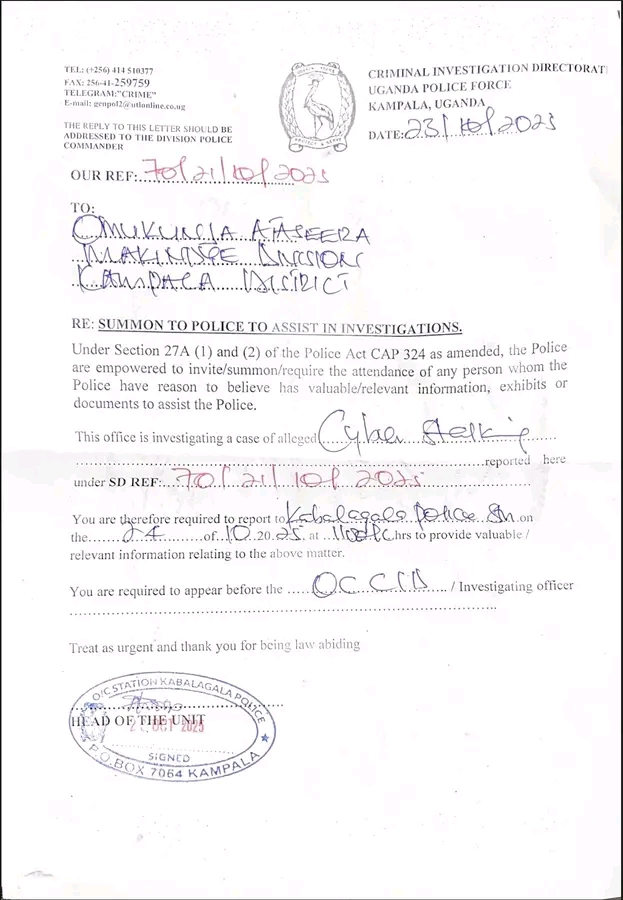 TEL: (+256) 414 510377
FAX: 256-41-259759
TELEGRAM:"CRIME"
E-mail: genpol2@utlonline.co.ug
THE REPLY TO THIS LETTER SHOULD BE
ADDRESSED TO THE DIVISION POLICE
COMMANDER
CRIMINAL INVESTIGATION DIRECTORAT
UGANDA POLICE FORCE
KAMPALA, UGANDA
DATE: 23/10/2025
PROTECT & SERVE
OUR REF: 70/21/10/2025
TO:
MAKINDYE DIVISION
KAMPALA DISTRICT
RE: SUMMON TO POLICE TO ASSIST IN INVESTIGATIONS.
Under Section 27A (1) and (2) of the Police Act CAP 324 as amended, the Police
are empowered to invite/summon/require the attendance of any person whom the
Police have reason to believe has valuable/relevant information, exhibits or
documents to assist the Police.
This office is investigating a case of alleged Cyber Stalking
reported here
under SD REF: 70/21/10/2025
You are therefore required to report to Kabalagala Police Stn on
the 24 of 10.20.25. at hrs to provide valuable /
relevant information relating to the above matter.
You are required to appear before the OC CID / Investigating officer
Treat as urgent and thank you for being law abiding
O/C STATION KABALAGALA POLICE
HEAD OF THE UNIT
OCT 2025
SIGNED
P.O.BOX 7064 KAMPALA